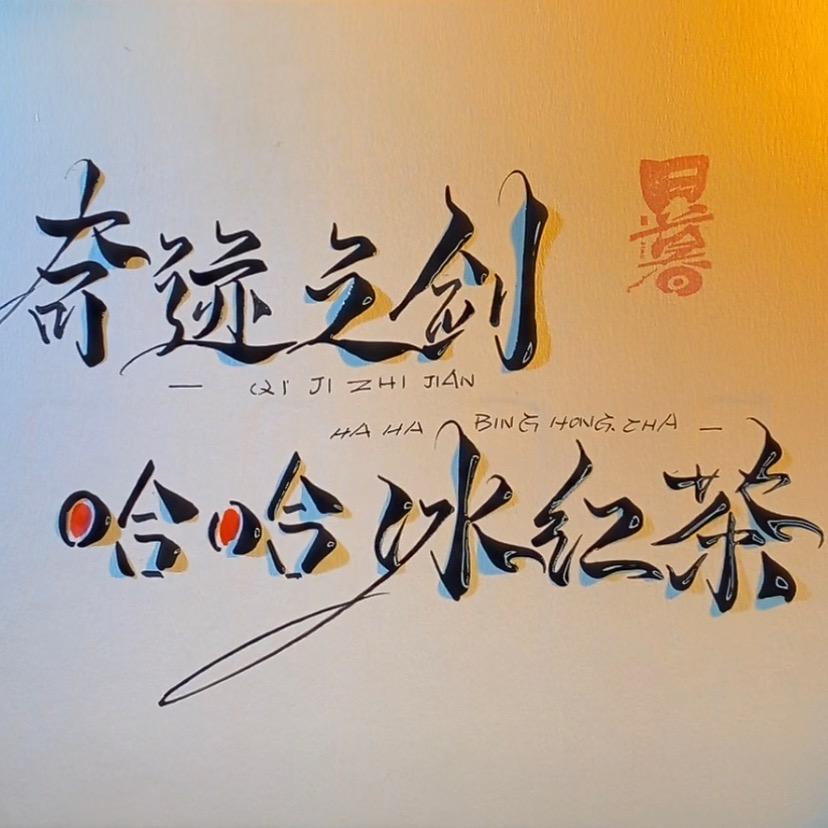 奇迹之剑
— QI JI ZHI JIAN
HA HA BING HONG CHA —
哈哈冰红茶